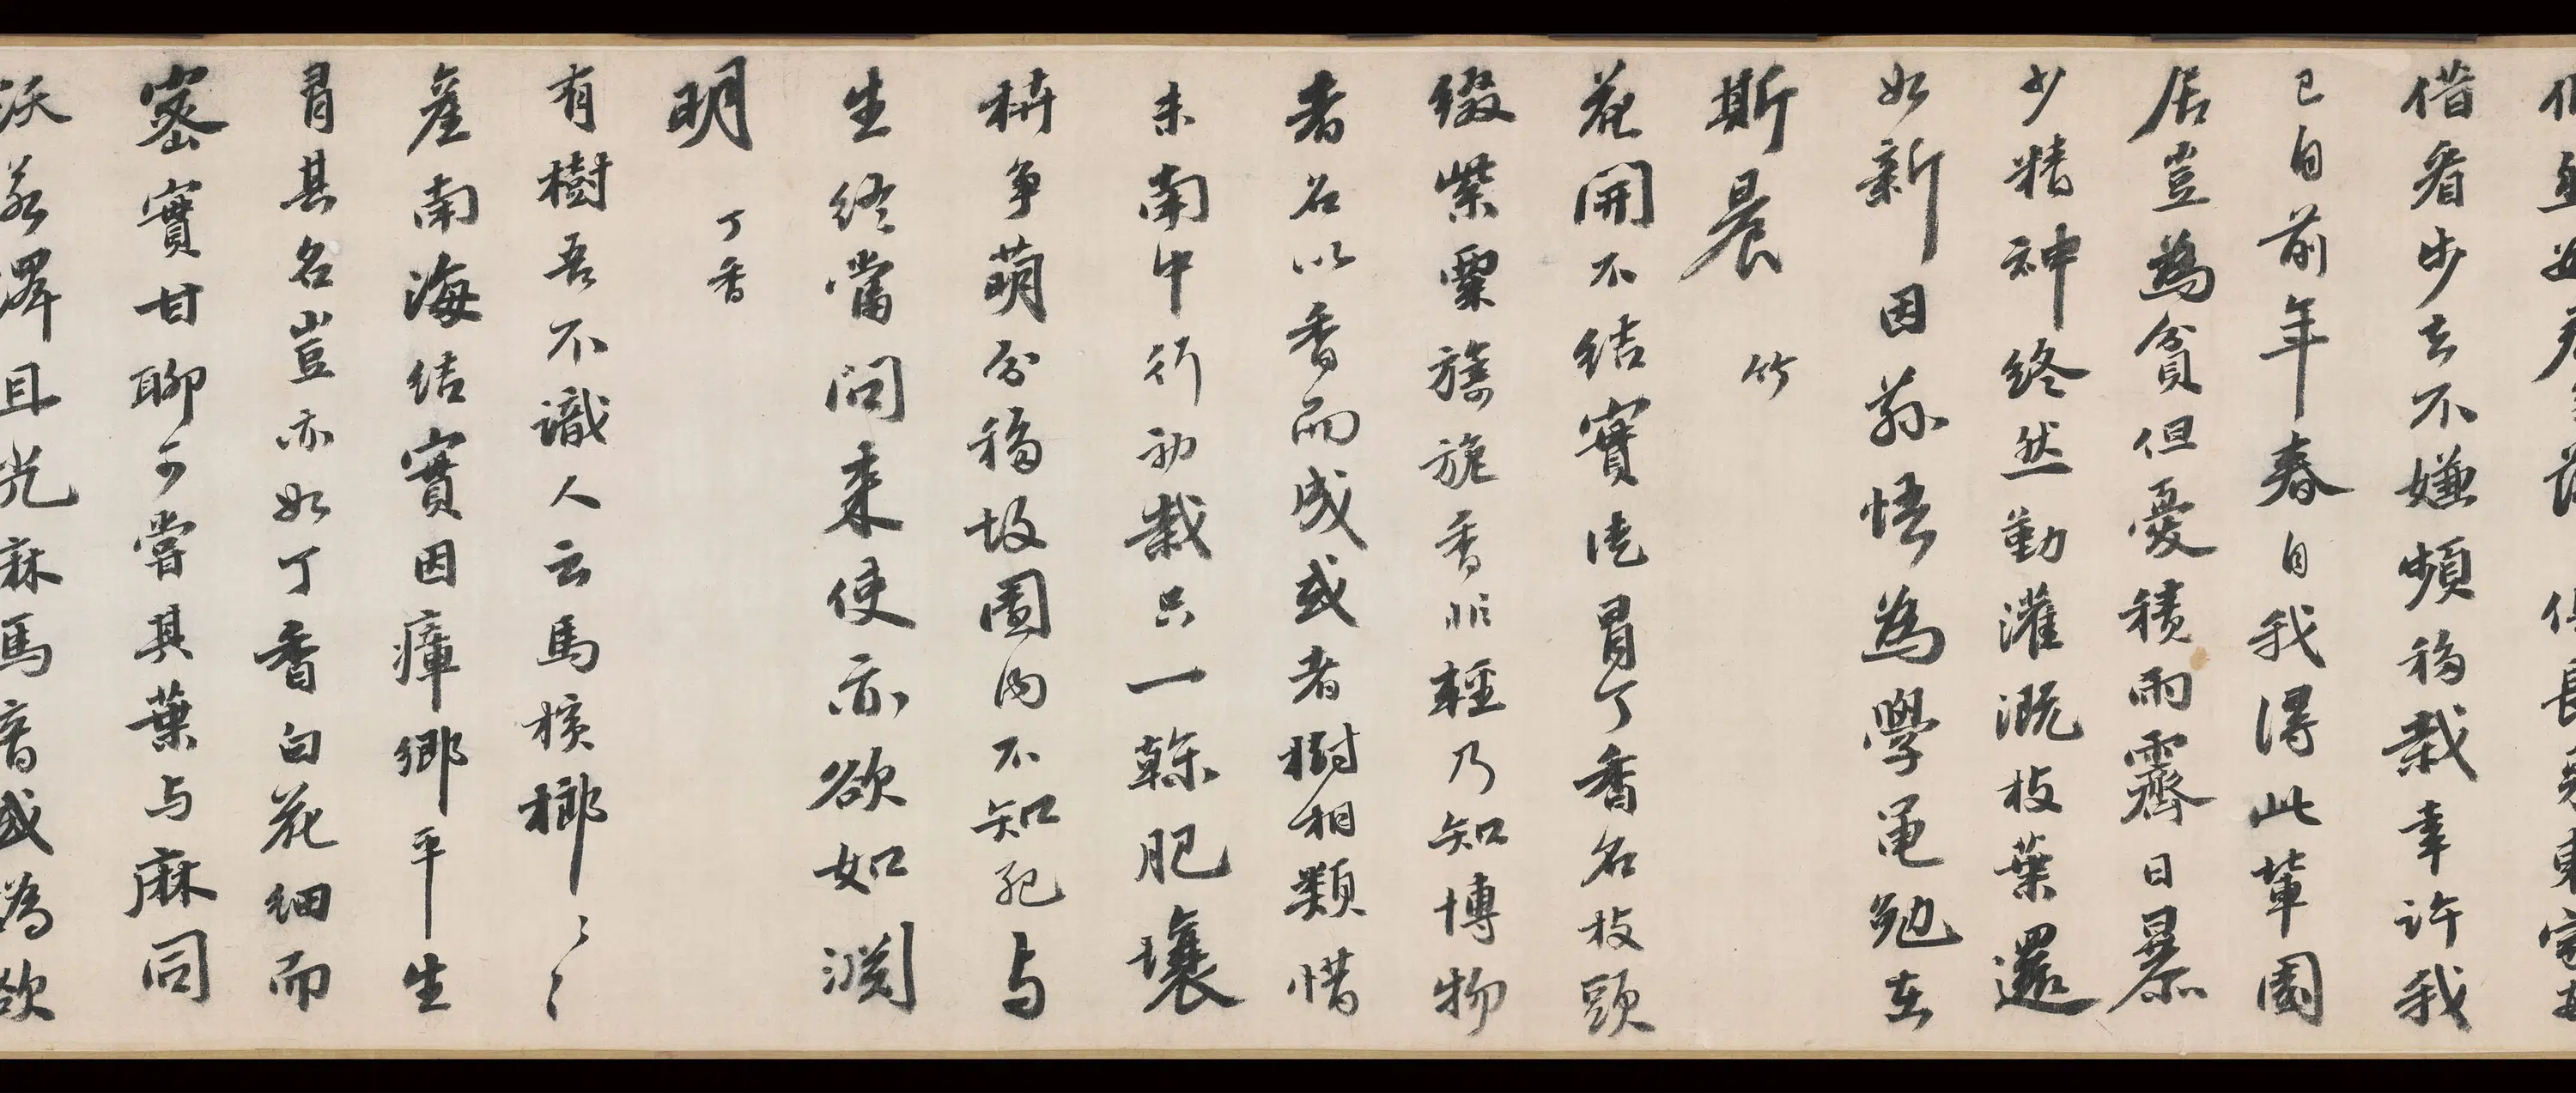 借看步去不嫌頻移栽幸許我
已自前年春自我得此輩園
居豈為貧但憂積雨霽日暴
少精神終然勤灌溉枝葉還
如新因荪悟為學黽勉在
斯晨 竹
花開不結實徒冒丁香名枝頭
綴紫粟旖旎香非輕乃知博物
者名以香而成或者樹相類惜
未南中行初栽只一榦肥壤
枿争萌分移故園内不知死与
生終當問来使亦欲如淵
明 丁香
有樹吾不識人云馬檳榔〻〻
產南海結實因瘴鄉平生
冐其名豈亦如丁香白花細而
密實甘聊可嘗其葉与麻同
沃若澤且光麻馬音或為欲